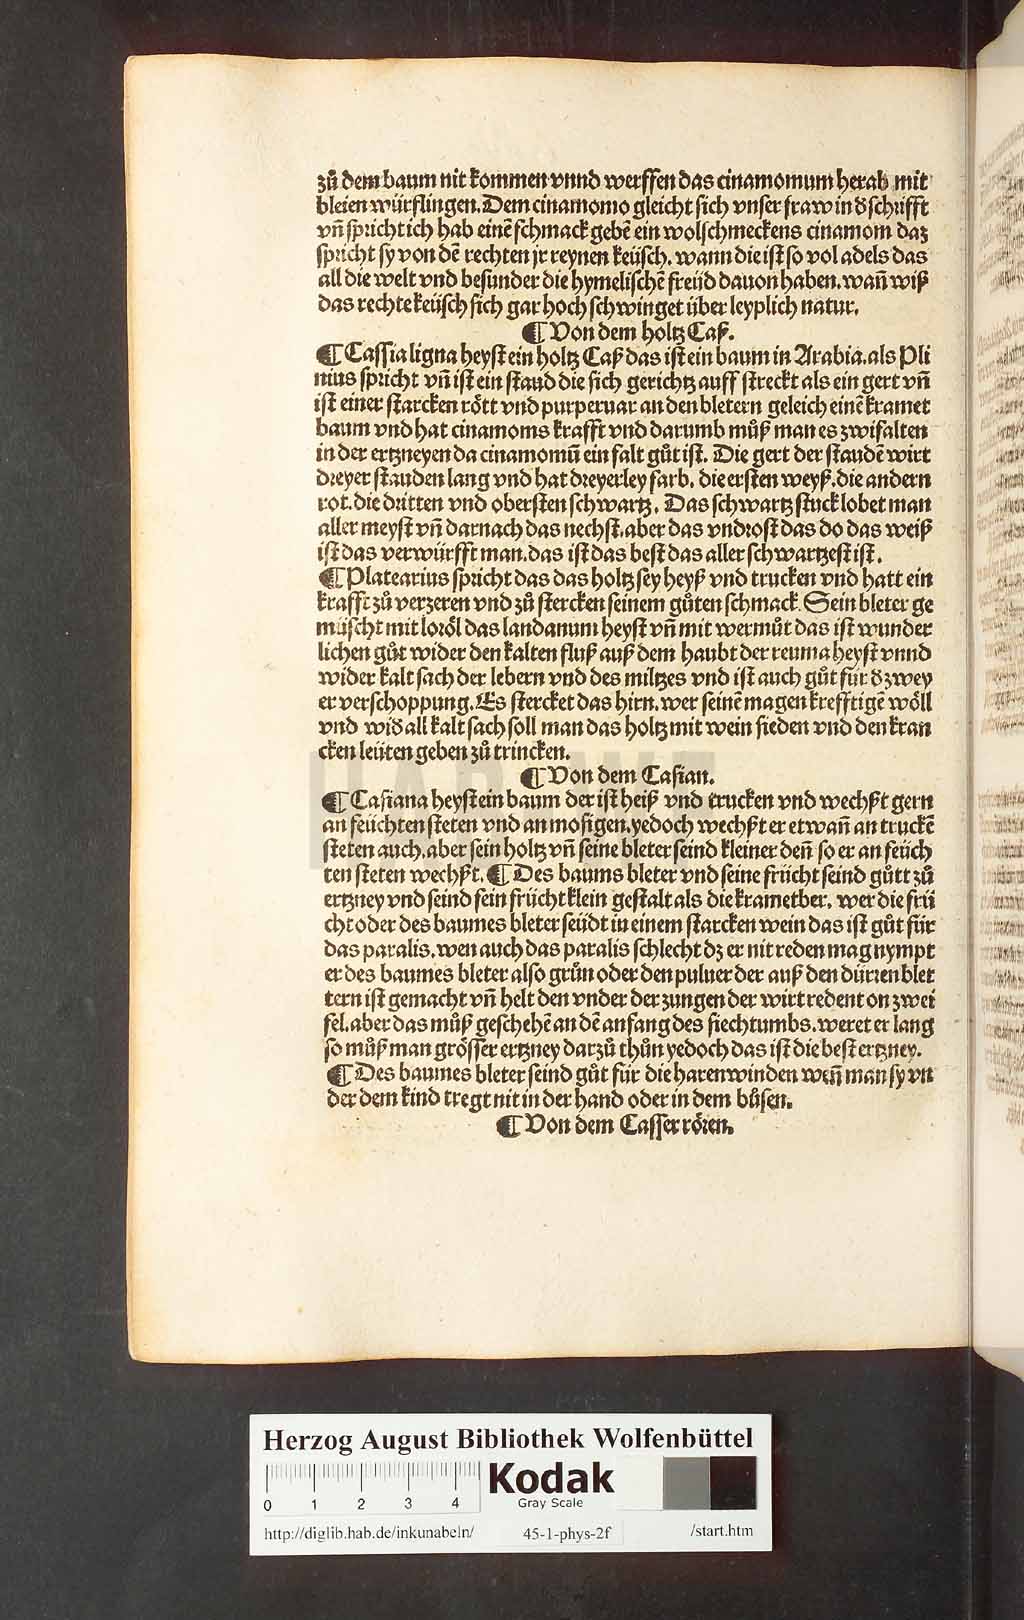 zů dem baum nit kommen vnnd werffen das cinamomum herab mit
bleien würflingen. Dem cinamomo gleicht sich vnser fraw in d̕ schrifft
vn̄ spricht ich hab einē schmack gebē ein wolschmeckens cinamom daz
spricht sy von dē rechten jr reynen keüsch. wann die ist so vol adels das
all die welt vnd besunder die hymelischē freüd dauon haben. wan̄ wiß
das rechte keüsch sich gar hoch schwinget über leyplich natur.
¶ Von dem holtz Caß.
¶ Cassia ligna heyst ein holtz Caß das ist ein baum in Arabia. als Pli
nius spricht vn̄ ist ein staud die sich gerichtz auff streckt als ein gert vn̄
ist einer starcken rött vnd purperuar an den bletern geleich einē kramet
baum vnd hat cinamoms krafft vnd darumb můß man es zwifalten
in der ertzneyen da cinamomū ein falt gůt ist. Die gert der staudē wirt
dreyer stauden lang vnd hat dreyerley farb. die ersten weyß. die andern
rot. die dritten vnd obersten schwartz. Das schwartz stuck lobet man
aller meyst vn̄ darnach das nechst. aber das vndrost das do das weiß
ist das verwürfft man. das ist das best das aller schwartzest ist.
¶ Platearius spricht das das holtz sey heyß vnd trucken vnd hatt ein
krafft zů verzeren vnd zů stercken seinem gůten schmack. Sein bleter ge
müscht mit loröl das landanum heyst vn̄ mit wermůt das ist wunder
lichen gůt wider den kalten fluß auß dem haubt der reuma heyst vnnd
wider kalt sach der lebern vnd des miltzes vnd ist auch gůt für d̕ zwey
er verschoppung. Es stercket das hirn. wer seinē magen krefftigē wöll
vnd wid̕ all kalt sach soll man das holtz mit wein sieden vnd den kran
cken leüten geben zů trincken.
¶ Von dem Casian.
¶ Casiana heyst ein baum der ist heiß vnd trucken vnd wechßt gern
an feüchten steten vnd an mosigen. yedoch wechßt er etwan̄ an truckē
steten auch. aber sein holtz vn̄ seine bleter seind kleiner den̄ so er an feüch
ten steten wechßt. ¶ Des baums bleter vnd seine frücht seind gůtt zů
ertzney vnd seind sein frücht klein gestalt als die krametber. wer die frü
cht oder des baumes bleter seüdt in einem starcken wein das ist gůt für
das paralis. wen auch das paralis schlecht dz er nit reden mag nympt
er des baumes bleter also grůn oder den puluer der auß den dürren blet
tern ist gemacht vn̄ helt den vnder der zungen der wirt redent on zwei
fel. aber das můß geschehē an dē anfang des siechtumbs. weret er lang
so můß man grösser ertzney darzů thůn yedoch das ist die best ertzney.
¶ Des baumes bleter seind gůt für die harenwinden wen̄ man sy vn
der dem kind tregt nit in der hand oder in dem bůsen.
¶ Von dem Casser rören.
HAB
Herzog August Bibliothek Wolfenbüttel
0 1 2 3 4
Kodak
Gray Scale
http://diglib.hab.de/inkunabeln/ 45-1-phys-2f /start.htm